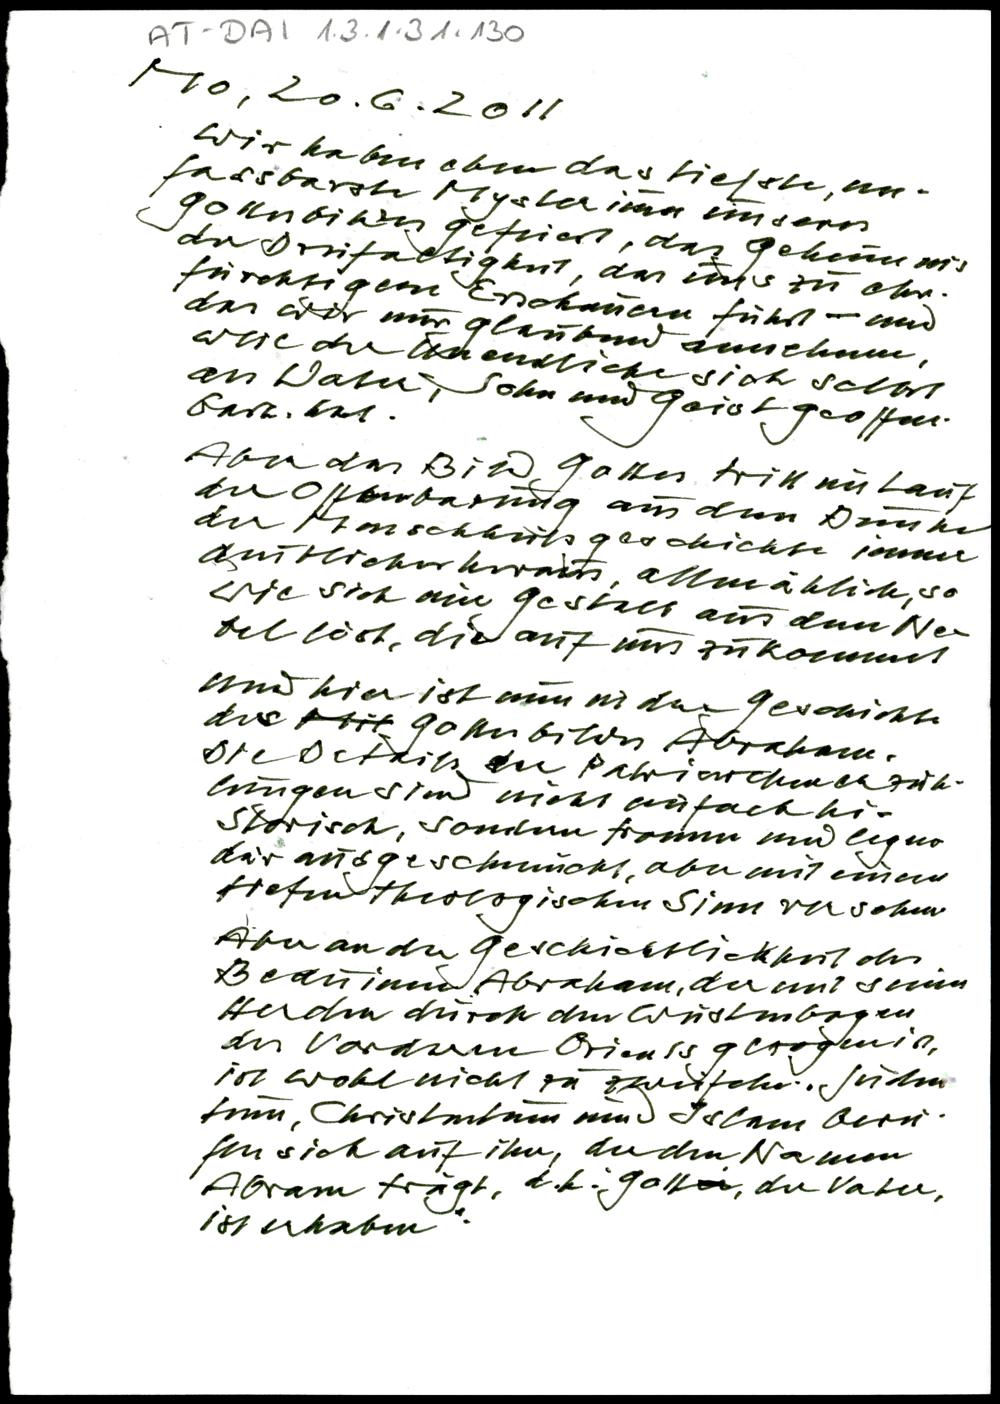 AT-DAI 1.3.1.31.130
Mo, 20.6.2011
Wir haben eben das tiefste, un-
fassbarste Mysterium unseres
Gottesbildes gefeiert, das Geheimnis
der Dreifaltigkeit, das uns zu ehr-
fürchtigem Erschauern führt – und
das wir nur glaubend annehmen,
weil der Unendliche sich selbst
als Vater, Sohn und Geist geoffen-
bart hat.
Aber das Bild Gottes tritt im Lauf
der Offenbarung aus dem Dunkel
der Menschheitsgeschichte immer
deutlicher heraus, allmählich, so
wie sich eine Gestalt aus dem Ne-
bel löst, die auf uns zukommt
Und hier ist nun in der Geschichte
des Gottesbildes Abraham.
Die Details der Patriarchenerzäh-
lungen sind nicht einfach hi-
storisch, sondern fromm und legen
där ausgeschmückt, aber mit einem
tiefen theologischen Sinn versehen
Aber an der Geschichtlichkeit des
Beduinen Abraham, der mit seinen
Herden durch den Wüstenbogen
des Vorderen Orients gezogen ist,
ist wohl nicht zu zweifeln. Juden
tum, Christentum und Islam beru-
fen sich auf ihn, der den Namen
Abram trägt, d.h. Gott, der Vater,
ist erhaben".